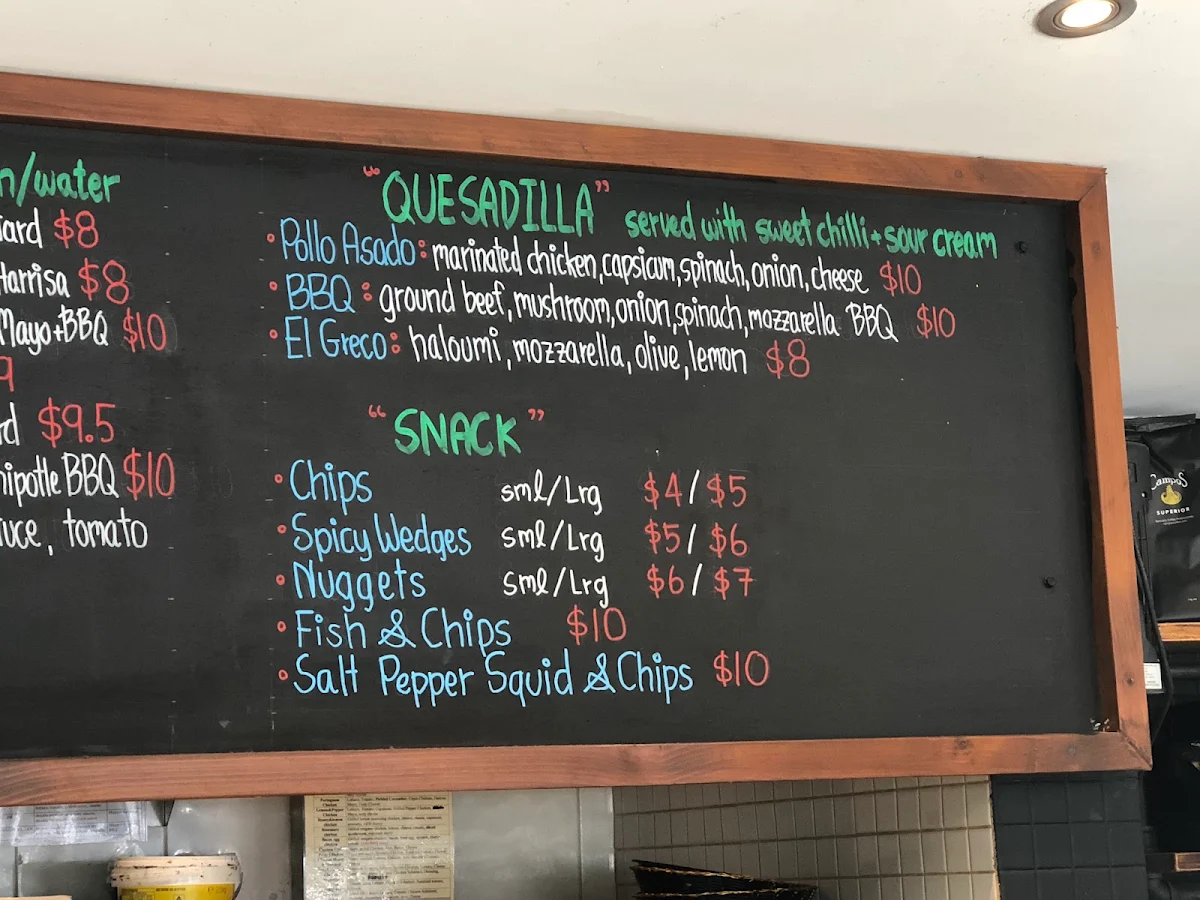 n/water
ard $8
Harrisa $8
Mayo+BBQ $10
9
rd $9.5
hipotle BBQ $10
uce, tomato
"QUESADILLA" served with sweet chilli + sour cream
• Pollo Asado: marinated chicken, capsicum, spinach, onion, cheese $10
• BBQ: ground beef, mushroom, onion, spinach, mozzarella BBQ $10
• El Greco: haloumi, mozzarella, olive, lemon $8
"SNACK"
• Chips sml/Lrg $4/$5
• Spicy Wedges sml/Lrg $5/$6
• Nuggets sml/Lrg $6/$7
• Fish & Chips $10
• Salt Pepper Squid & Chips $10
Campos
SUPERIOR